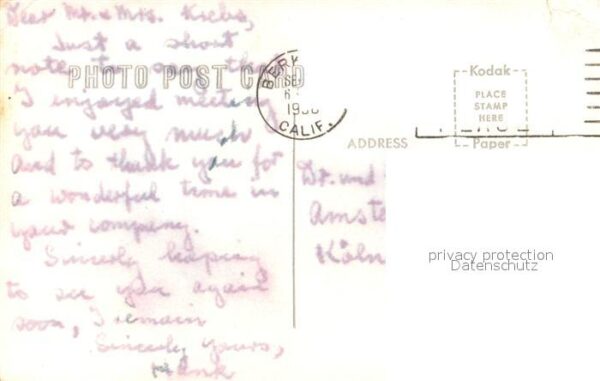 Dear Mr. & Mrs. Krebs,
Just a short
note to say that
I enjoyed meeting
you very much
and to thank you for
a wonderful time in
your company.
Sincerly hoping
to see you again
soon, I remain
Sincerly yours,
Hank
PHOTO POST CARD
CALIF.
ADDRESS
Kodak
PLACE
STAMP
HERE
Paper
Dr. und
Amste
Köln
privacy protection
Datenschutz